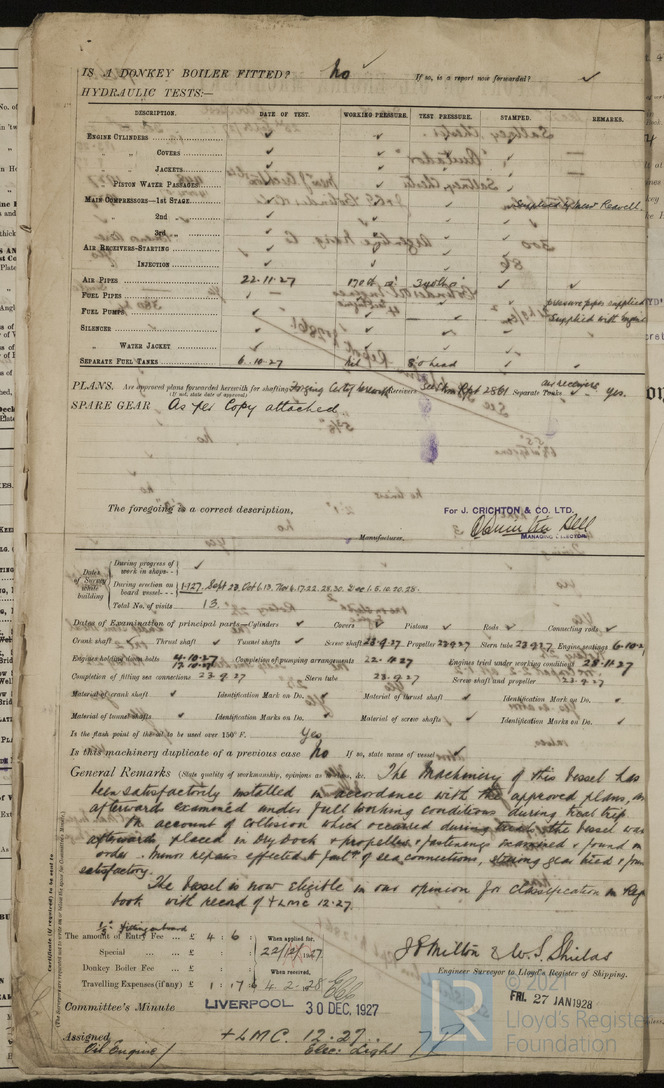 IS A DONKEY BOILER FITTED? No ✓ If so, is a report now forwarded? ✓
HYDRAULIC TESTS:—
DESCRIPTION. DATE OF TEST. WORKING PRESSURE. TEST PRESSURE. STAMPED. REMARKS.
ENGINE CYLINDERS ✓ ✓
„ COVERS ✓ ✓
„ JACKETS ✓
PISTON WATER PASSAGES ✓
MAIN COMPRESSORS—1st STAGE ✓ Supplied by Messrs Reavell
„ 2nd „ ✓
„ 3rd „ ✓
AIR RECEIVERS—STARTING ✓
„ INJECTION ✓
AIR PIPES 22.11.27 ✓ ✓
FUEL PIPES ✓ pressure pipes supplied
FUEL PUMPS ✓ Supplied with Engine
SILENCER ✓
„ WATER JACKET ✓
SEPARATE FUEL TANKS 6.10.27 nil 8'0 head ✓
PLANS. Are approved plans forwarded herewith for shafting Receivers Separate Tanks yes.
(If not, state date of approval)
SPARE GEAR As per Copy attached
The foregoing is a correct description,
For J. CRICHTON & CO. LTD.
MANAGING DIRECTOR
Manufacturer.
Dates of Survey while building
During progress of work in shops - - ✓
During erection on board vessel - - - 1927. Sept 23. Oct 6. 13. Nov 6. 17. 22. 28. 30. Dec 1. 5. 10. 20. 28.
Total No. of visits 13.
Dates of Examination of principal parts—Cylinders ✓ Covers ✓ Pistons ✓ Rods ✓ Connecting rods ✓
Crank shaft ✓ Thrust shaft ✓ Tunnel shafts ✓ Screw shaft 23.9.27 Propeller 23.9.27 Stern tube 23.9.27 Engine seatings 6-10-2
Engines holding down bolts 4.10.27 12.10.27 Completion of pumping arrangements 22.11.27 Engines tried under working conditions 28.11.27
Completion of fitting sea connections 23.9.27 Stern tube 23.9.27 Screw shaft and propeller 23.9.27
Material of crank shaft ✓ Identification Mark on Do. ✓ Material of thrust shaft ✓ Identification Mark on Do. ✓
Material of tunnel shafts ✓ Identification Marks on Do. ✓ Material of screw shafts ✓ Identification Marks on Do. ✓
Is the flash point of the oil to be used over 150° F. Yes
Is this machinery duplicate of a previous case No If so, state name of vessel ✓
General Remarks (State quality of workmanship, opinions as to class, &c. The Machinery of this Vessel has
been satisfactorily installed in accordance with the approved plans, an
afterwards examined under full working conditions during trial trip
On account of collision which occurred during trials the vessel was
afterwards placed in Dry Dock & propeller & fastenings examined & found in
order. Minor repairs effected to sea connections, steering gear tried & foun
satisfactory.
The Vessel is now eligible in our opinion for classification in Reg
book with record of +LMC 12.27.
Certificate (if required) to be sent to
fitting on board
The amount of Entry Fee ... £ 4 : 6 : When applied for,
Special ... ... £ : : 22/12/1927.
Donkey Boiler Fee ... £ : : When received,
Travelling Expenses (if any) £ 1 : 17 : 6 4.2.28
J S Milton & W. S. Shields
Engineer Surveyor to Lloyd's Register of Shipping.
Committee's Minute LIVERPOOL 30 DEC. 1927
FRI. 27 JAN 1928
Assigned + LMC. 12.27.
Oil Engine / Elec. Light
© 2021
Lloyd's Register
Foundation
LR